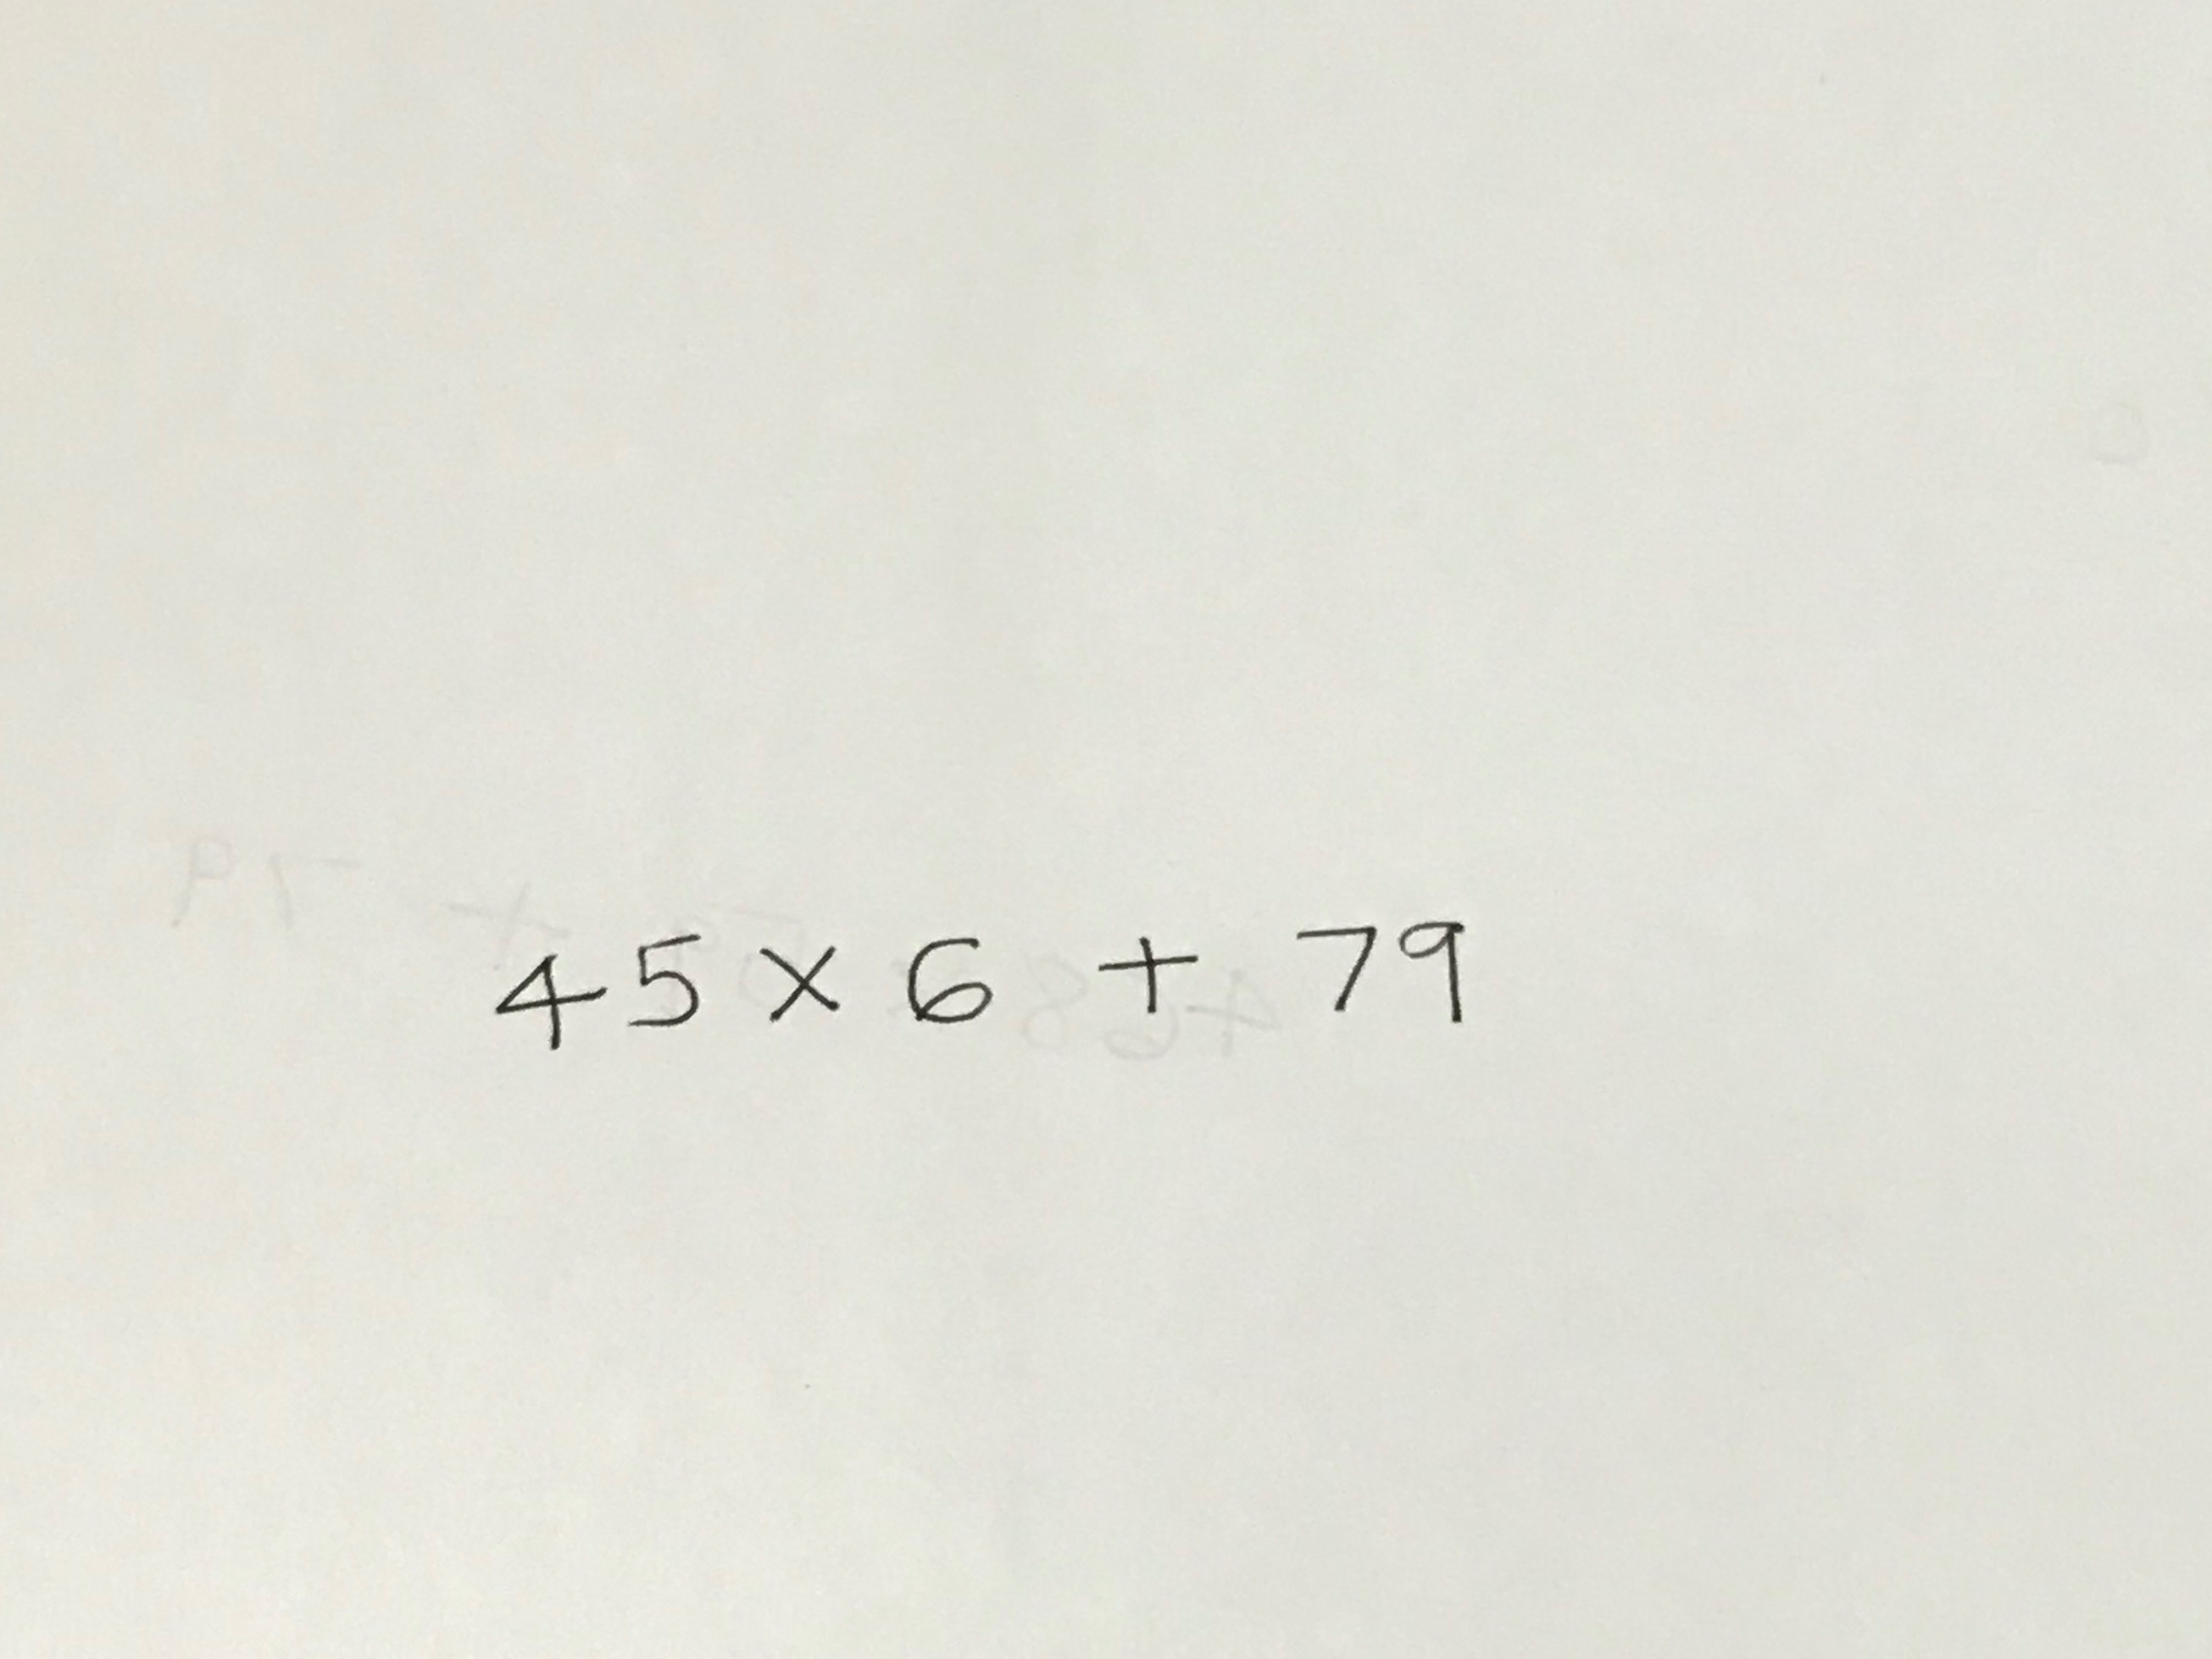 45 × 6 + 79